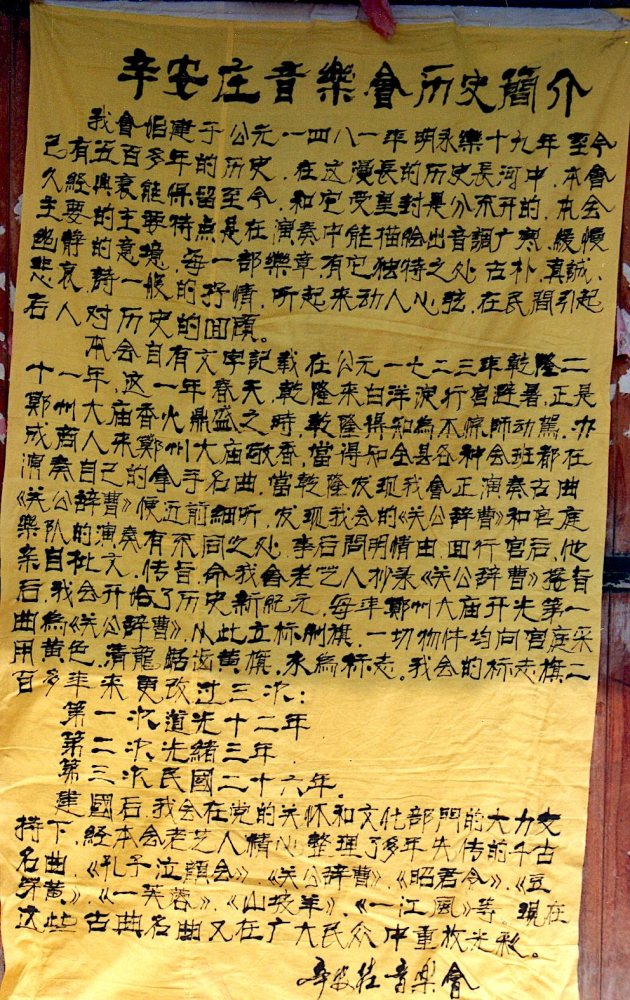 辛安庄音樂會历史簡介
我會始建于公元一四八一年明永樂十九年至今
已有五百多年的历史.在这漫長的历史長河中.本會
久經興衰能保留至今.和它受皇封是分不開的.本会
主要的主要特点是在演奏中能描繪出音調广寒.緩慢
幽靜的意境.每一部樂章有它独特之处古朴.真誠.
悲哀.詩一般的抒情.听起来动人心弦.在民間引起
后人对历史的回顧。
本会自有文字記載在公元一七二三年乾隆二
十一年.这一年春天.乾隆来白洋淀行宫避暑.正是
鄭州大庙香火鼎盛之時.乾隆得知為不惊師动駕.办
成商人来鄭州大庙敬香.當得知全县各种会班都在
演奏自己的拿手名曲.當乾隆发现我會正演奏古曲
《关公辞曹》便五前細听.发现我会的《关公辞曹》和宫庭
樂队的演奏有不同之处.事后問明情由.回行宫后.他
亲自批文.传旨.命我會老艺人抄录《关公辞曹》接旨
后.我会开始了历史新紀元.每年鄭州大庙开光第一
曲為《关公辞曹》.从此立标制旗.一切物件均向宫庭采
用黄色.清龍踞齿黄旗.永為标志。我会的标志旗二
百多年来更改过三次:
第一次道光十二年
第二次光緒三年.
第三次民國二十六年.
建國后.我会在党的关怀和文化部門的大力支
持下.經本会老艺人精心整理了多年失传的千古
名曲.《孔子泣顏会》《关公辞曹》.《昭君令》.《豆
芽黄》.《一芙蓉》.《山坡羊》.《一江風》等.現在
这些古典名曲又在广大民众中重放光彩。
辛安庄音樂會